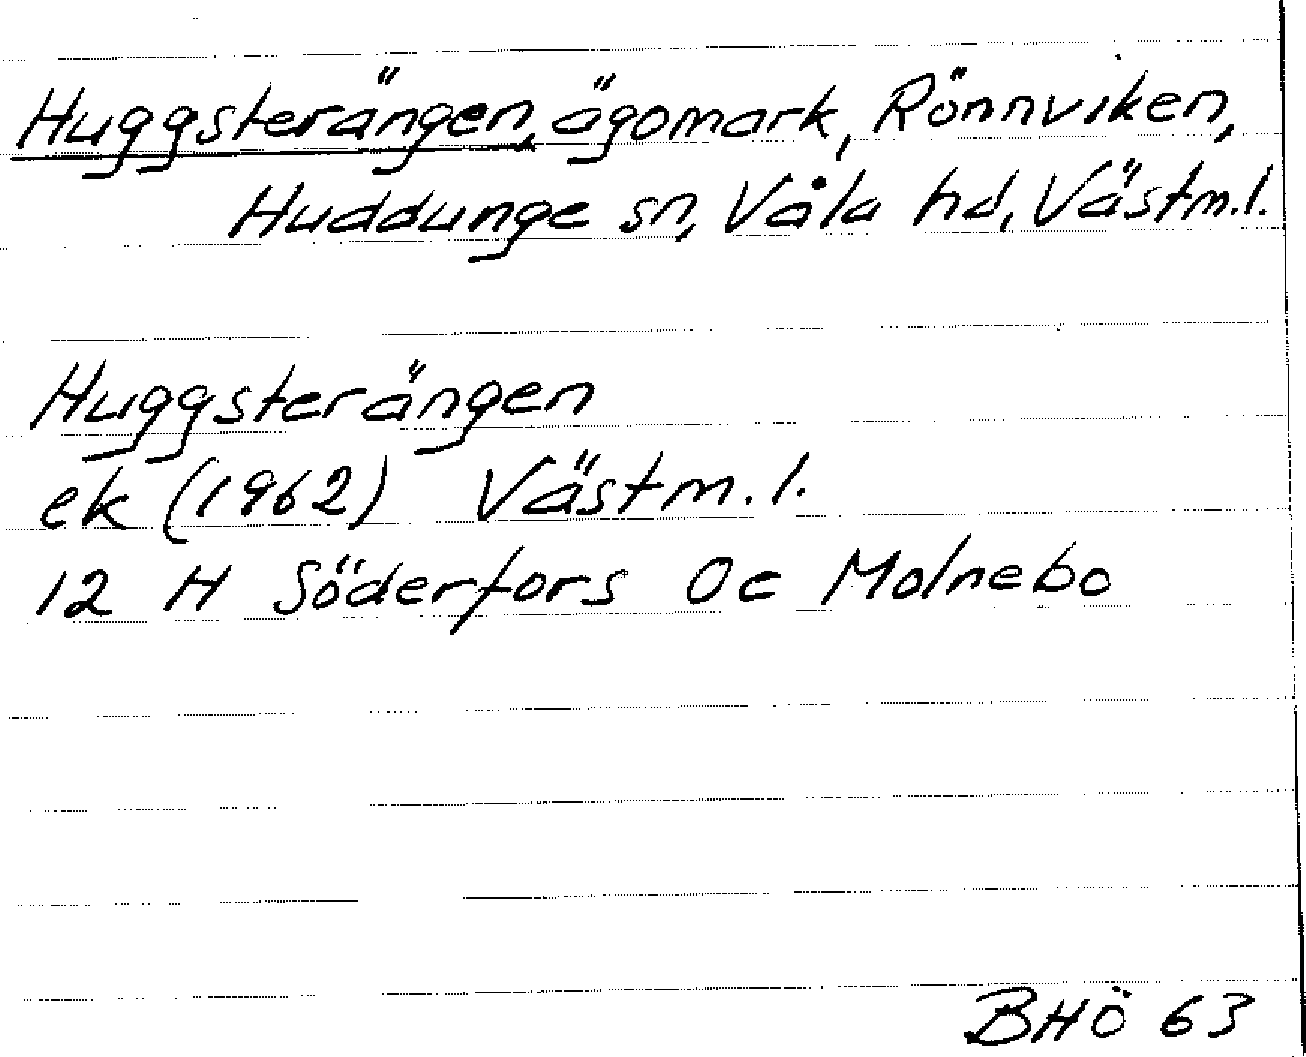 Huggsterängen, ägomark, Rönnviken,
Huddunge sn, Våla hd, Västm.l.
Huggsterängen
ek (1962) Västm.l.
12 H Söderfors 0c Molnebo
BHÖ 63